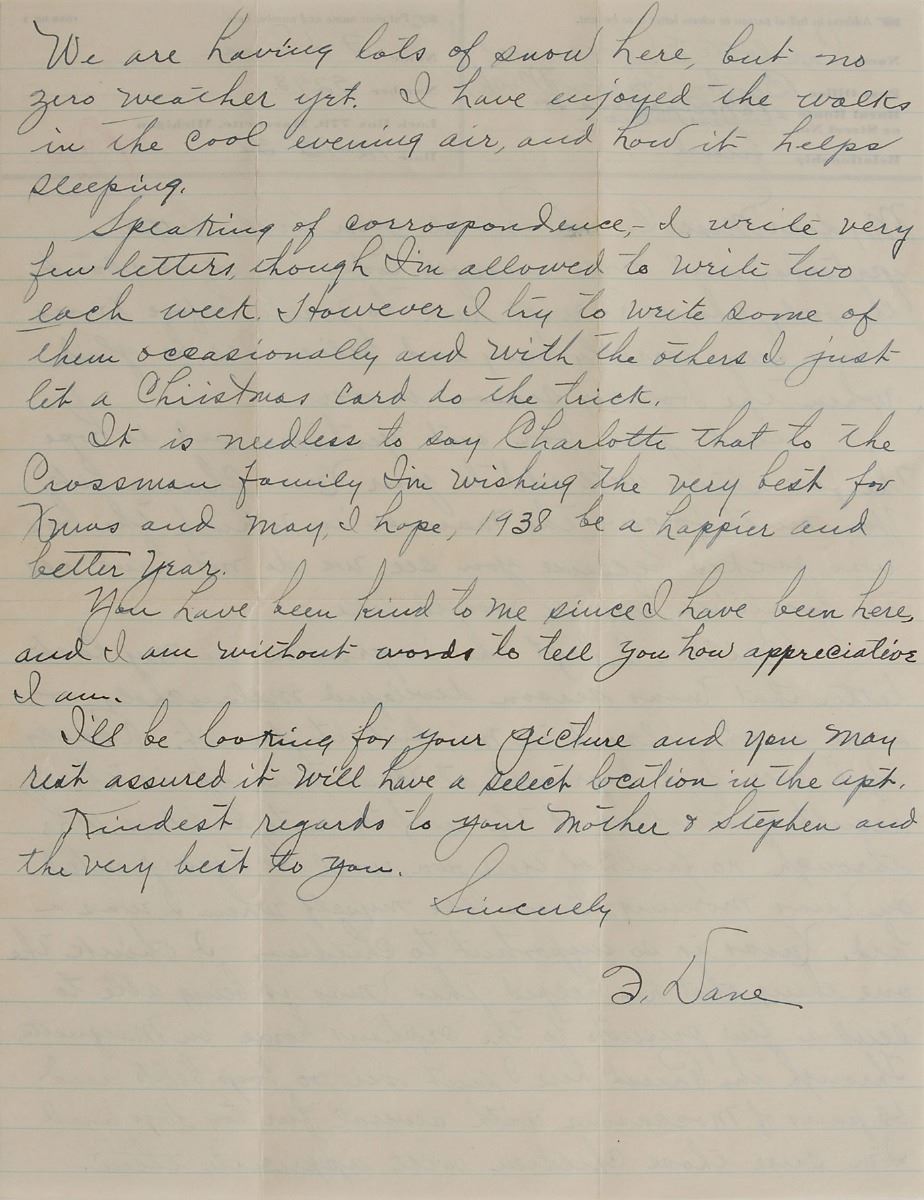 We are having lots of snow here, but no
zero weather yet. I have enjoyed the walks
in the cool evening air, and how it helps
sleeping.
Speaking of correspondence,- I write very
few letters, though I'm allowed to write two
each week. However I try to write some of
them occasionally and with the others I just
let a Christmas card do the trick.
It is needless to say Charlotte that to the
Crossman family I'm wishing the very best for
Xmas and may, I hope, 1938 be a happier and
better year.
You have been kind to me since I have been here,
and I am without words to tell you how appreciative
I am.
I'll be looking for your picture and you may
rest assured it will have a select location in the apt.
Kindest regards to your Mother & Stephen and
the very best to you.
Sincerely
F. Dane